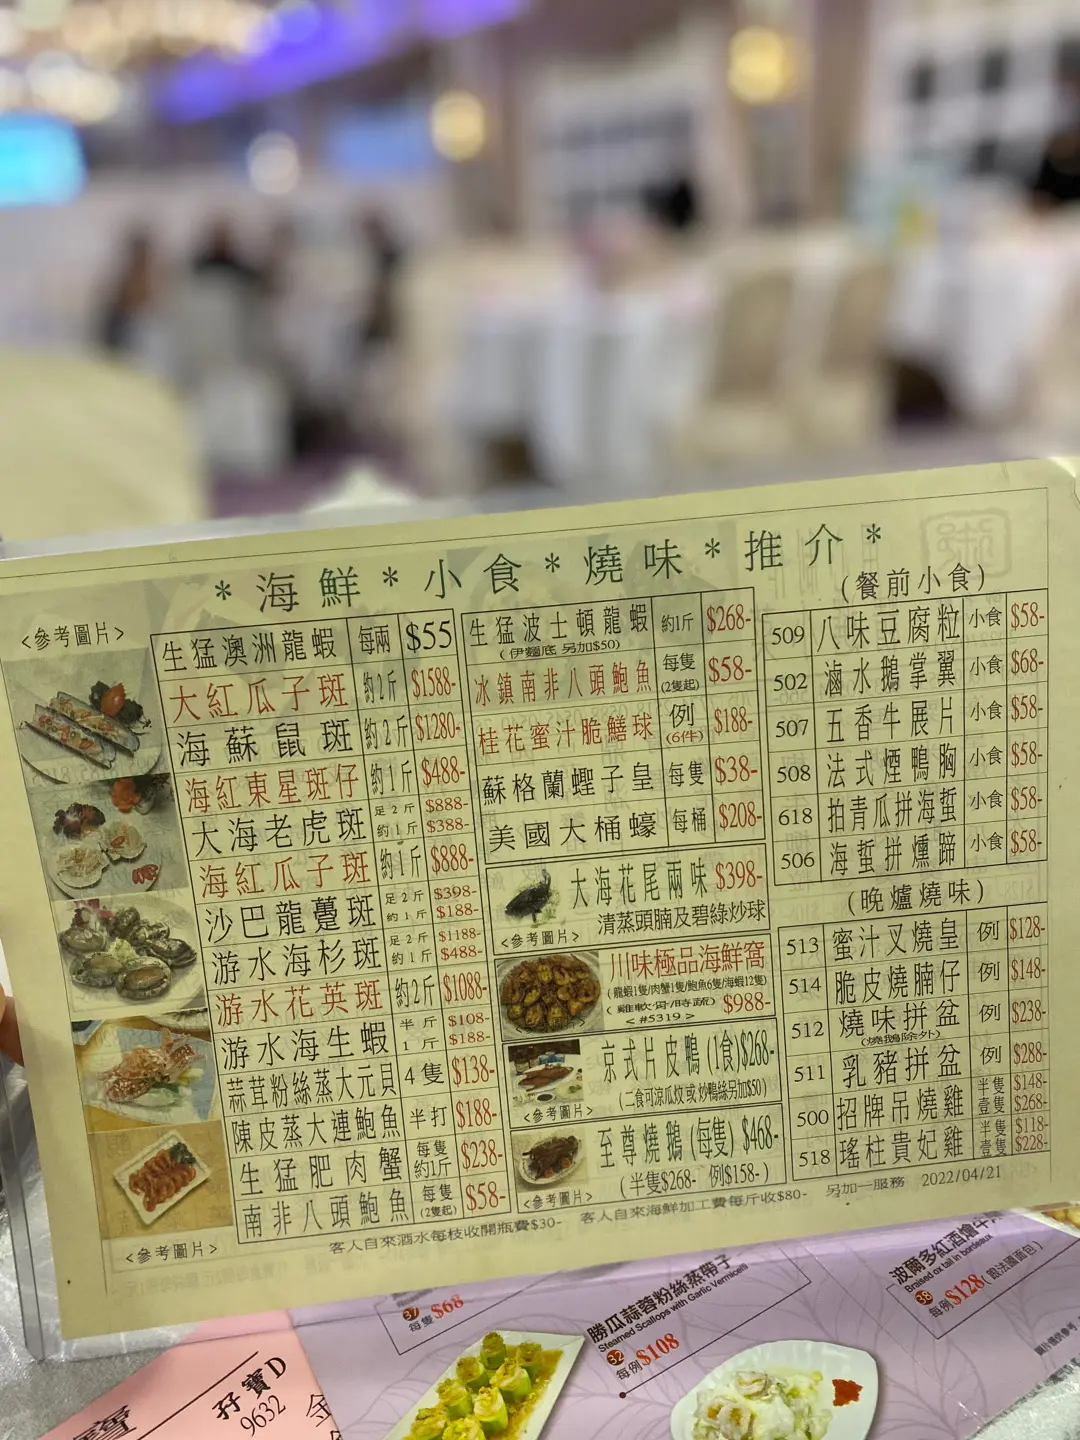 *海鮮*小食*燒味*推介*
<參考圖片>
生猛澳洲龍蝦 每兩 $55
大紅瓜子斑 約2斤 $1588-
海蘇鼠斑 約2斤 $1280-
海紅東星斑仔 約1斤 $488-
大海老虎斑 足2斤 $888-
約1斤 $388-
海紅瓜子斑 約1斤 $888-
沙巴龍躉斑 足2斤 $398-
約1斤 $188-
游水海杉斑 足2斤 $1188-
約1斤 $488-
游水花英斑 約2斤 $1088-
游水海生蝦 半斤 $108-
1斤 $188-
蒜茸粉絲蒸大元貝 4隻 $138-
陳皮蒸大連鮑魚 半打 $188-
生猛肥肉蟹 每隻約1斤 $238-
南非八頭鮑魚 每隻(2隻起) $58-
<參考圖片>
生猛波士頓龍蝦 約1斤 $268-
(伊麵底 另加$50)
冰鎮南非八頭鮑魚 每隻(2隻起) $58-
桂花蜜汁脆鱔球 例(6件) $188-
蘇格蘭蟶子皇 每隻 $38-
美國大桶蠔 每桶 $208-
大海花尾兩味 $398-
清蒸頭腩及碧綠炒球
<參考圖片>
川味極品海鮮窩
(龍蝦1隻/肉蟹1隻/鮑魚6隻/海蝦12隻)
(雞軟骨/時蔬) $988-
<#5319>
京式片皮鴨 (1食)$268-
(二食可涼瓜炆或炒鴨絲另加$50)
<參考圖片>
至尊燒鵝 (每隻) $468-
(半隻$268- 例$158-)
<參考圖片>
(餐前小食)
509 八味豆腐粒 小食 $58-
502 滷水鵝掌翼 小食 $68-
507 五香牛展片 小食 $58-
508 法式煙鴨胸 小食 $58-
618 拍青瓜拼海蜇 小食 $58-
506 海蜇拼燻蹄 小食 $58-
(晚爐燒味)
513 蜜汁叉燒皇 例 $128-
514 脆皮燒腩仔 例 $148-
512 燒味拼盆 例 $238-
(燒鵝除外)
511 乳豬拼盆 例 $288-
500 招牌吊燒雞 半隻 $148-
壹隻 $268-
518 瑤柱貴妃雞 半隻 $118-
壹隻 $228-
客人自來酒水每枝收開瓶費$30- 客人自來海鮮加工費每斤收$80- 另加一服務 2022/04/21
37 每隻 $68
勝瓜蒜蓉粉絲蒸帶子
Steamed Scallops with Garlic Vermicelli
32 每例 $108
波爾多紅酒燴牛尾
Braised ox tail in bordeaux
38 每例 $128 (跟法國面包)
孖寶D
9632